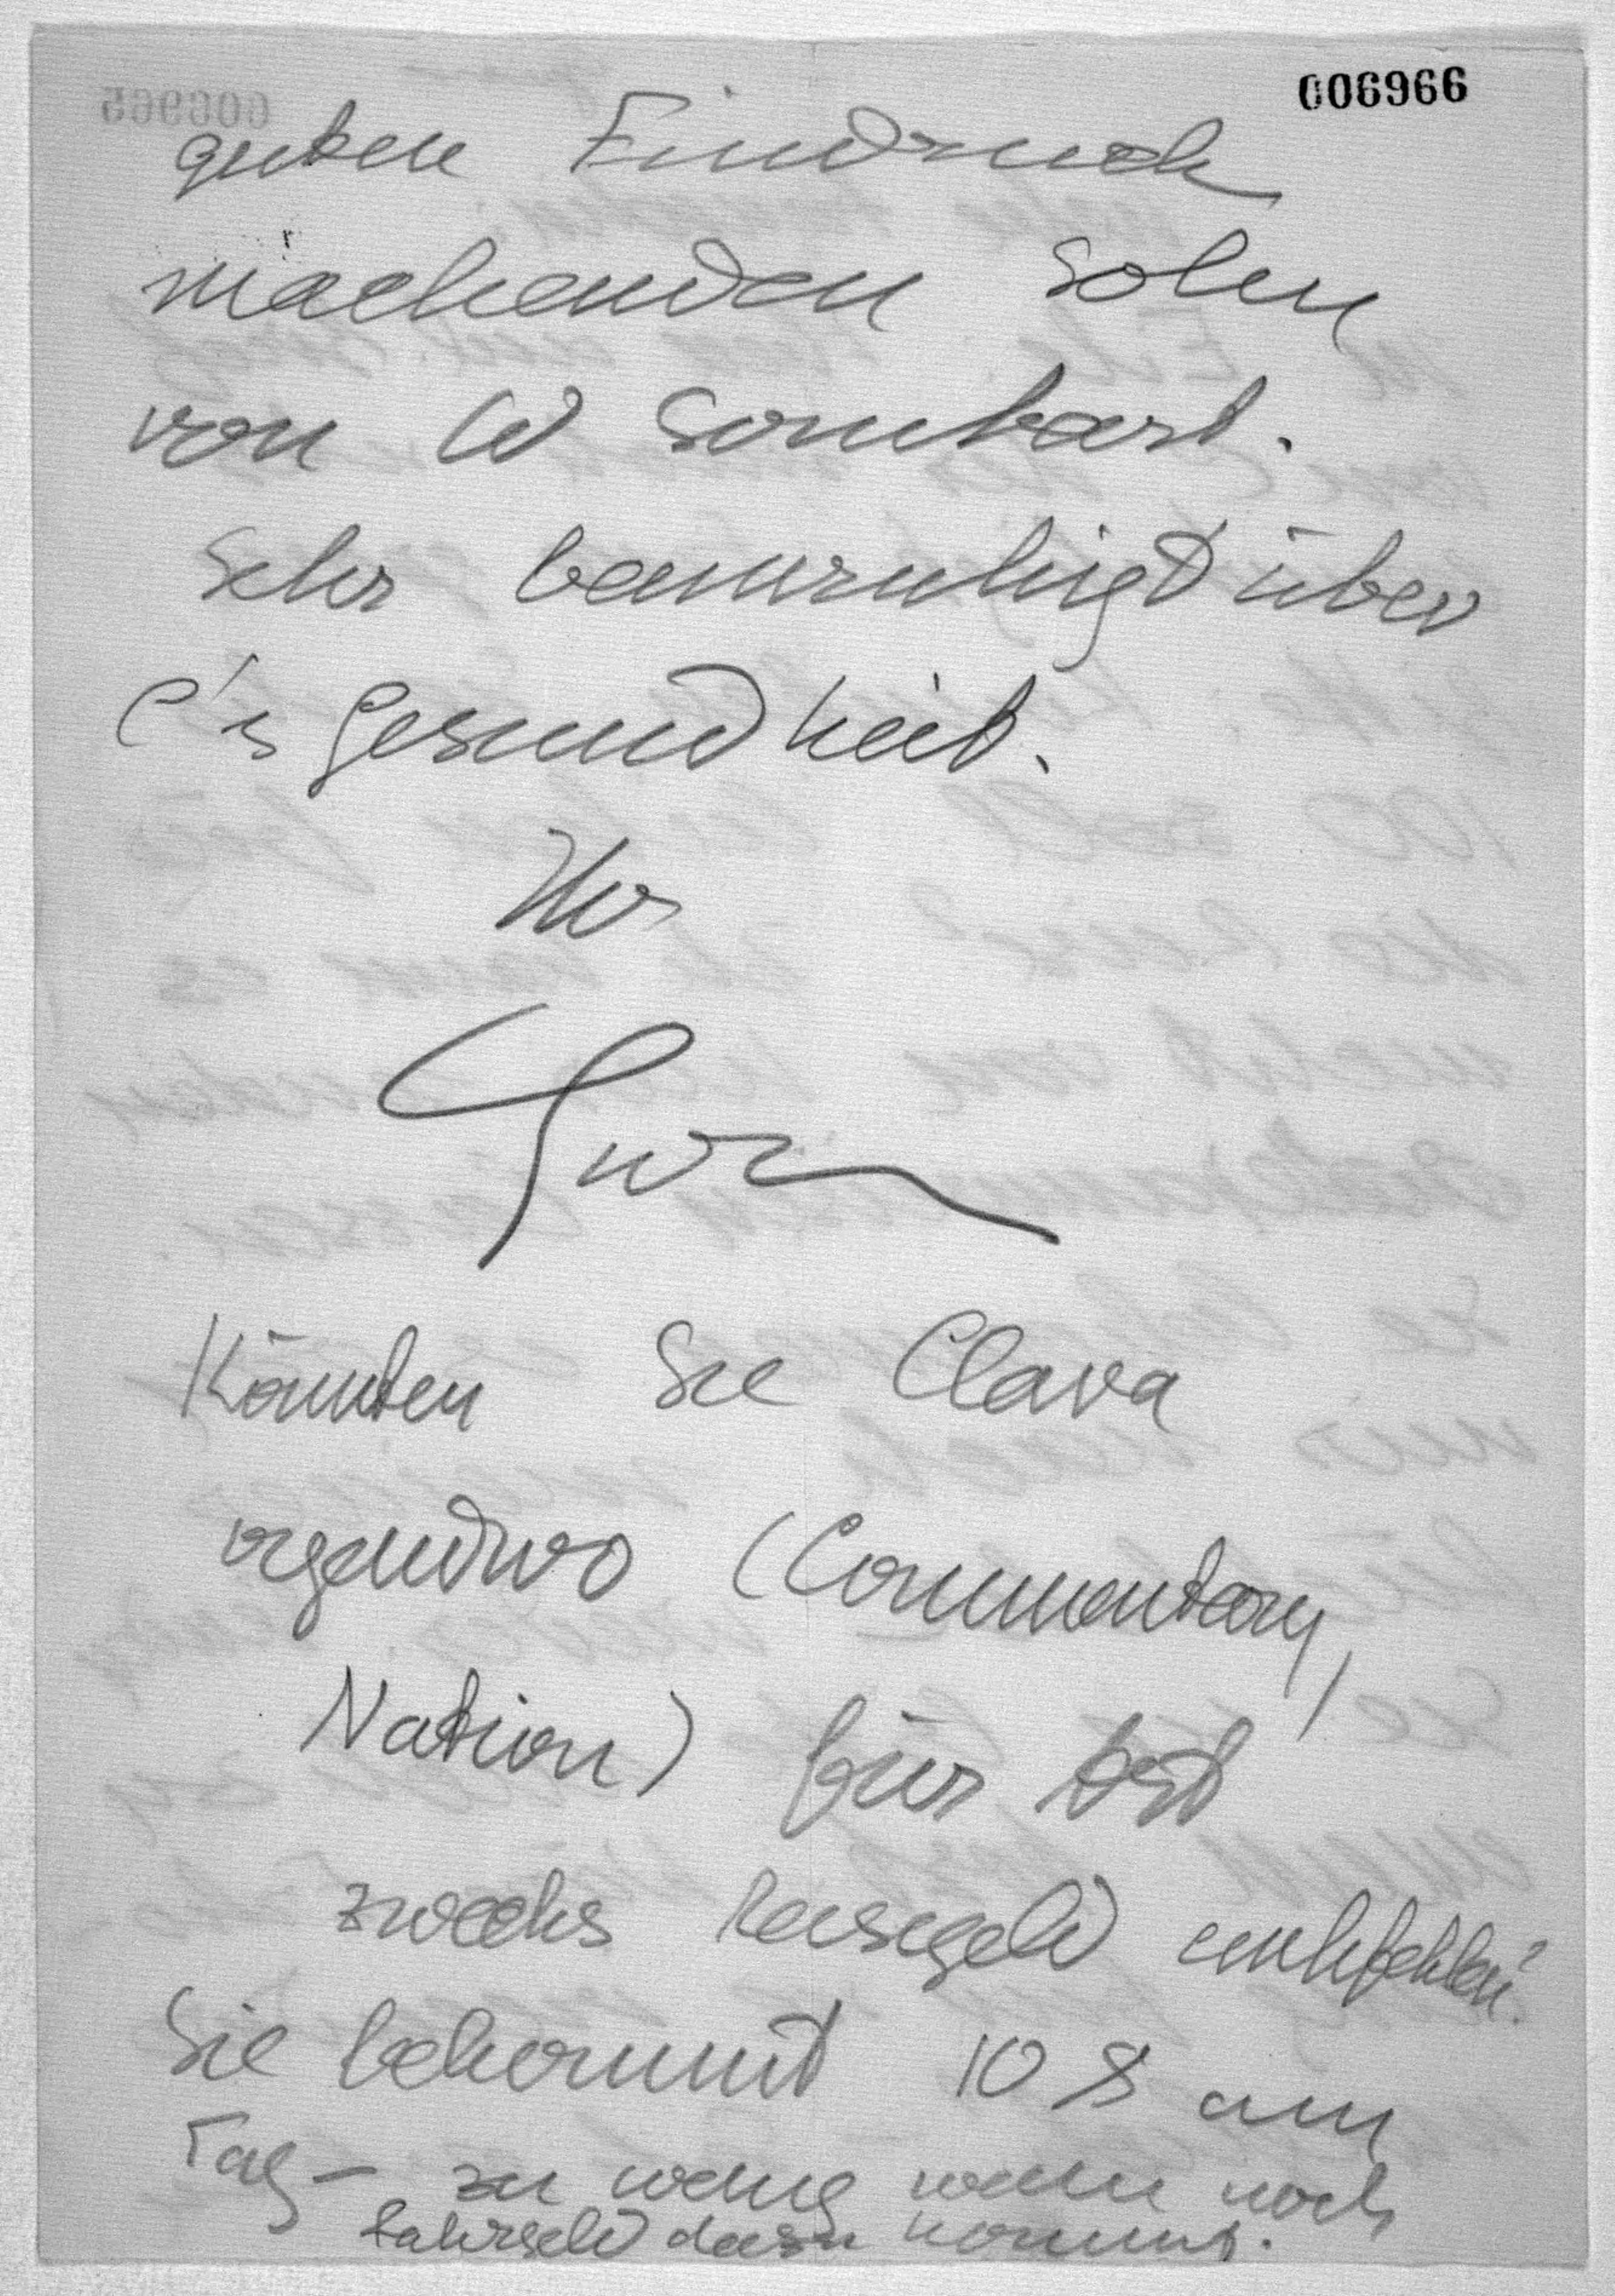 006966
guten Eindruck
machenden Sohn
von W Sombart.
Sehr beunruhigt über
C's Gesundheit.
Ihr
Könnten Sie Clara
irgendwo (Commentary,
Nation) für Art
zwecks Reisegeld empfehlen?
Sie bekommt 10 $ am
Tag – zu wenig wenn noch
Fahrgeld dazu kommt.